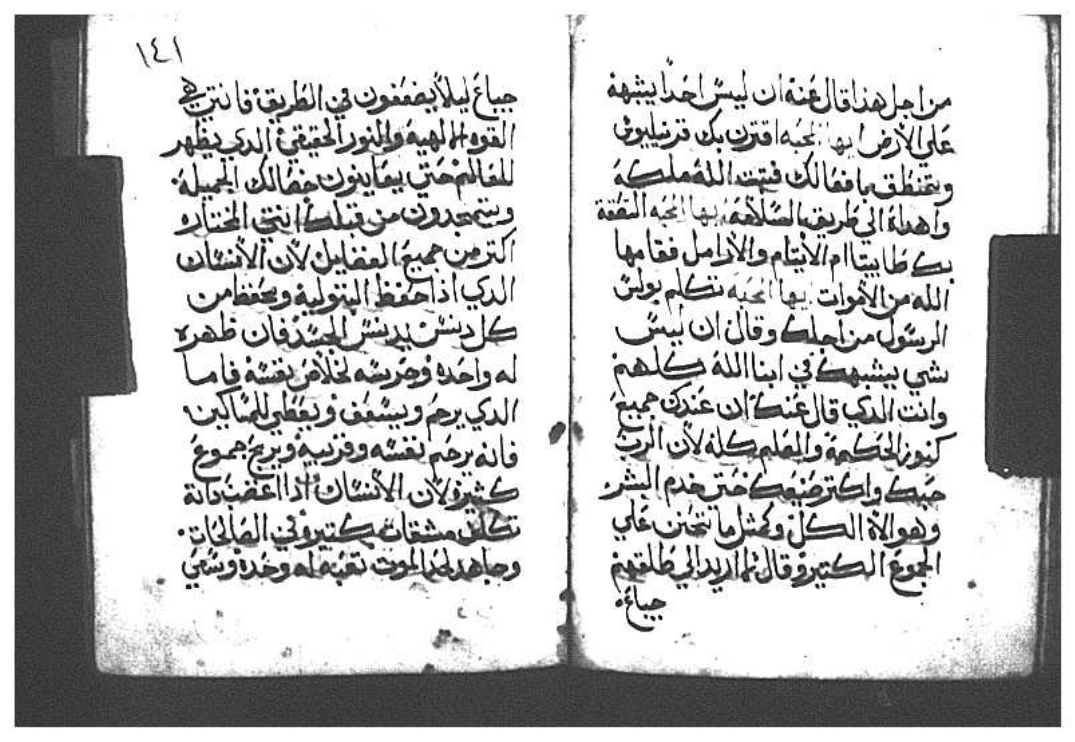 من اجل هذا قال عنه ان ليس احدا يشبهه
علي الارض ايها المحبه اقترن بك قرنيليوس
ويتمنطق بافعالك فتبت الله ملكه
واهداه الي طريق الصلاحه ايها المحبه التفقة
بك طابيتا ام الايتام والارامل فقامها
الله من الاموات ايها المحبه تكلم بولس
الرسول من اجلك وقال ان ليس
شي يشبهك في ابنا الله كلهم
وانت الدي قال عنك ان عندك جميع
كنوز الحكمة والعلم كله لان الرب
حبك واكتر صنيعك حتي خدم البشر
وهو الاه الكل وكمثل ما تحنن علي
الجموع الكتيرة وقال ما اريد الي طلقهم
جياع٠
١٤١
جياع ليلا يضعفون في الطريق فانتي هي
القوه الالهيه والنور الحقيقي الدي يظهر
للعالم حتي يعاينون خصالك الجميلة٠
ويتمجدون من قبلك انتي المختاره
اكتر من جميع الفضايل لان الانسان
الدي ادا حفظ البتولية وتحفظ من
كل دنس يدنس الجسد فان ظهره
له واحده وحريسه لخلاص نفسه فاما
الدي يرحم ويسعف ويعطي للمساكين٠
فانه يرحم نفسه وقرنيه ويربح جموع
كثيرة لان الانسان ادا اغضب دانة
تكلف مشقات كتيره في الصالحات٠
وجاهد لحد الموت تعبه له وحده وشقي